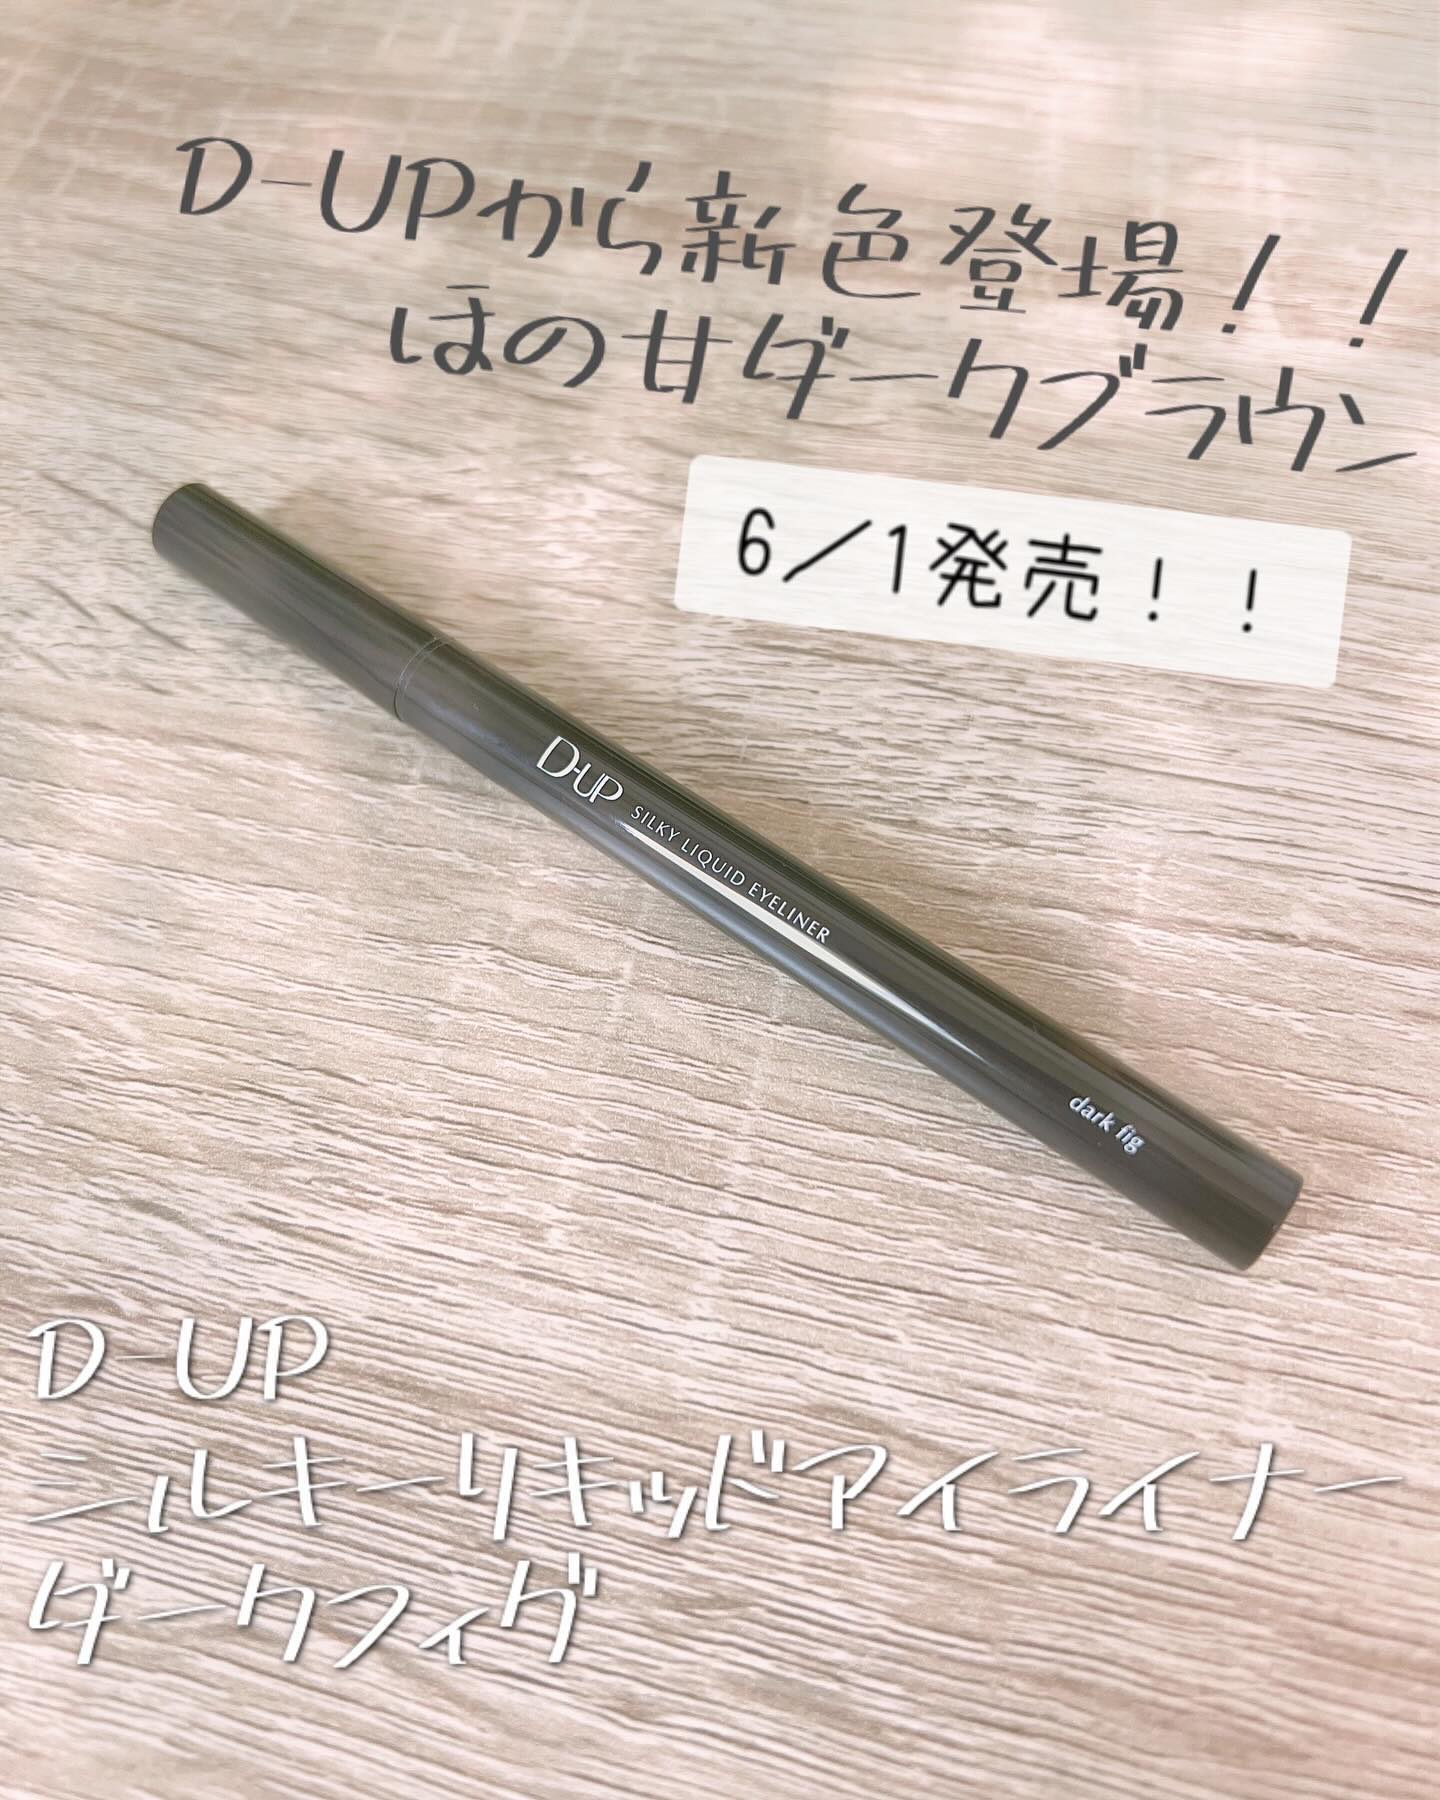 D-UPから新色登場！！
ほの甘ダークブラウン
6／1発売！！
D-UP SILKY LIQUID EYELINER
dark fig
D-UP
シルキーリキッドアイライナー
ダークフィグ